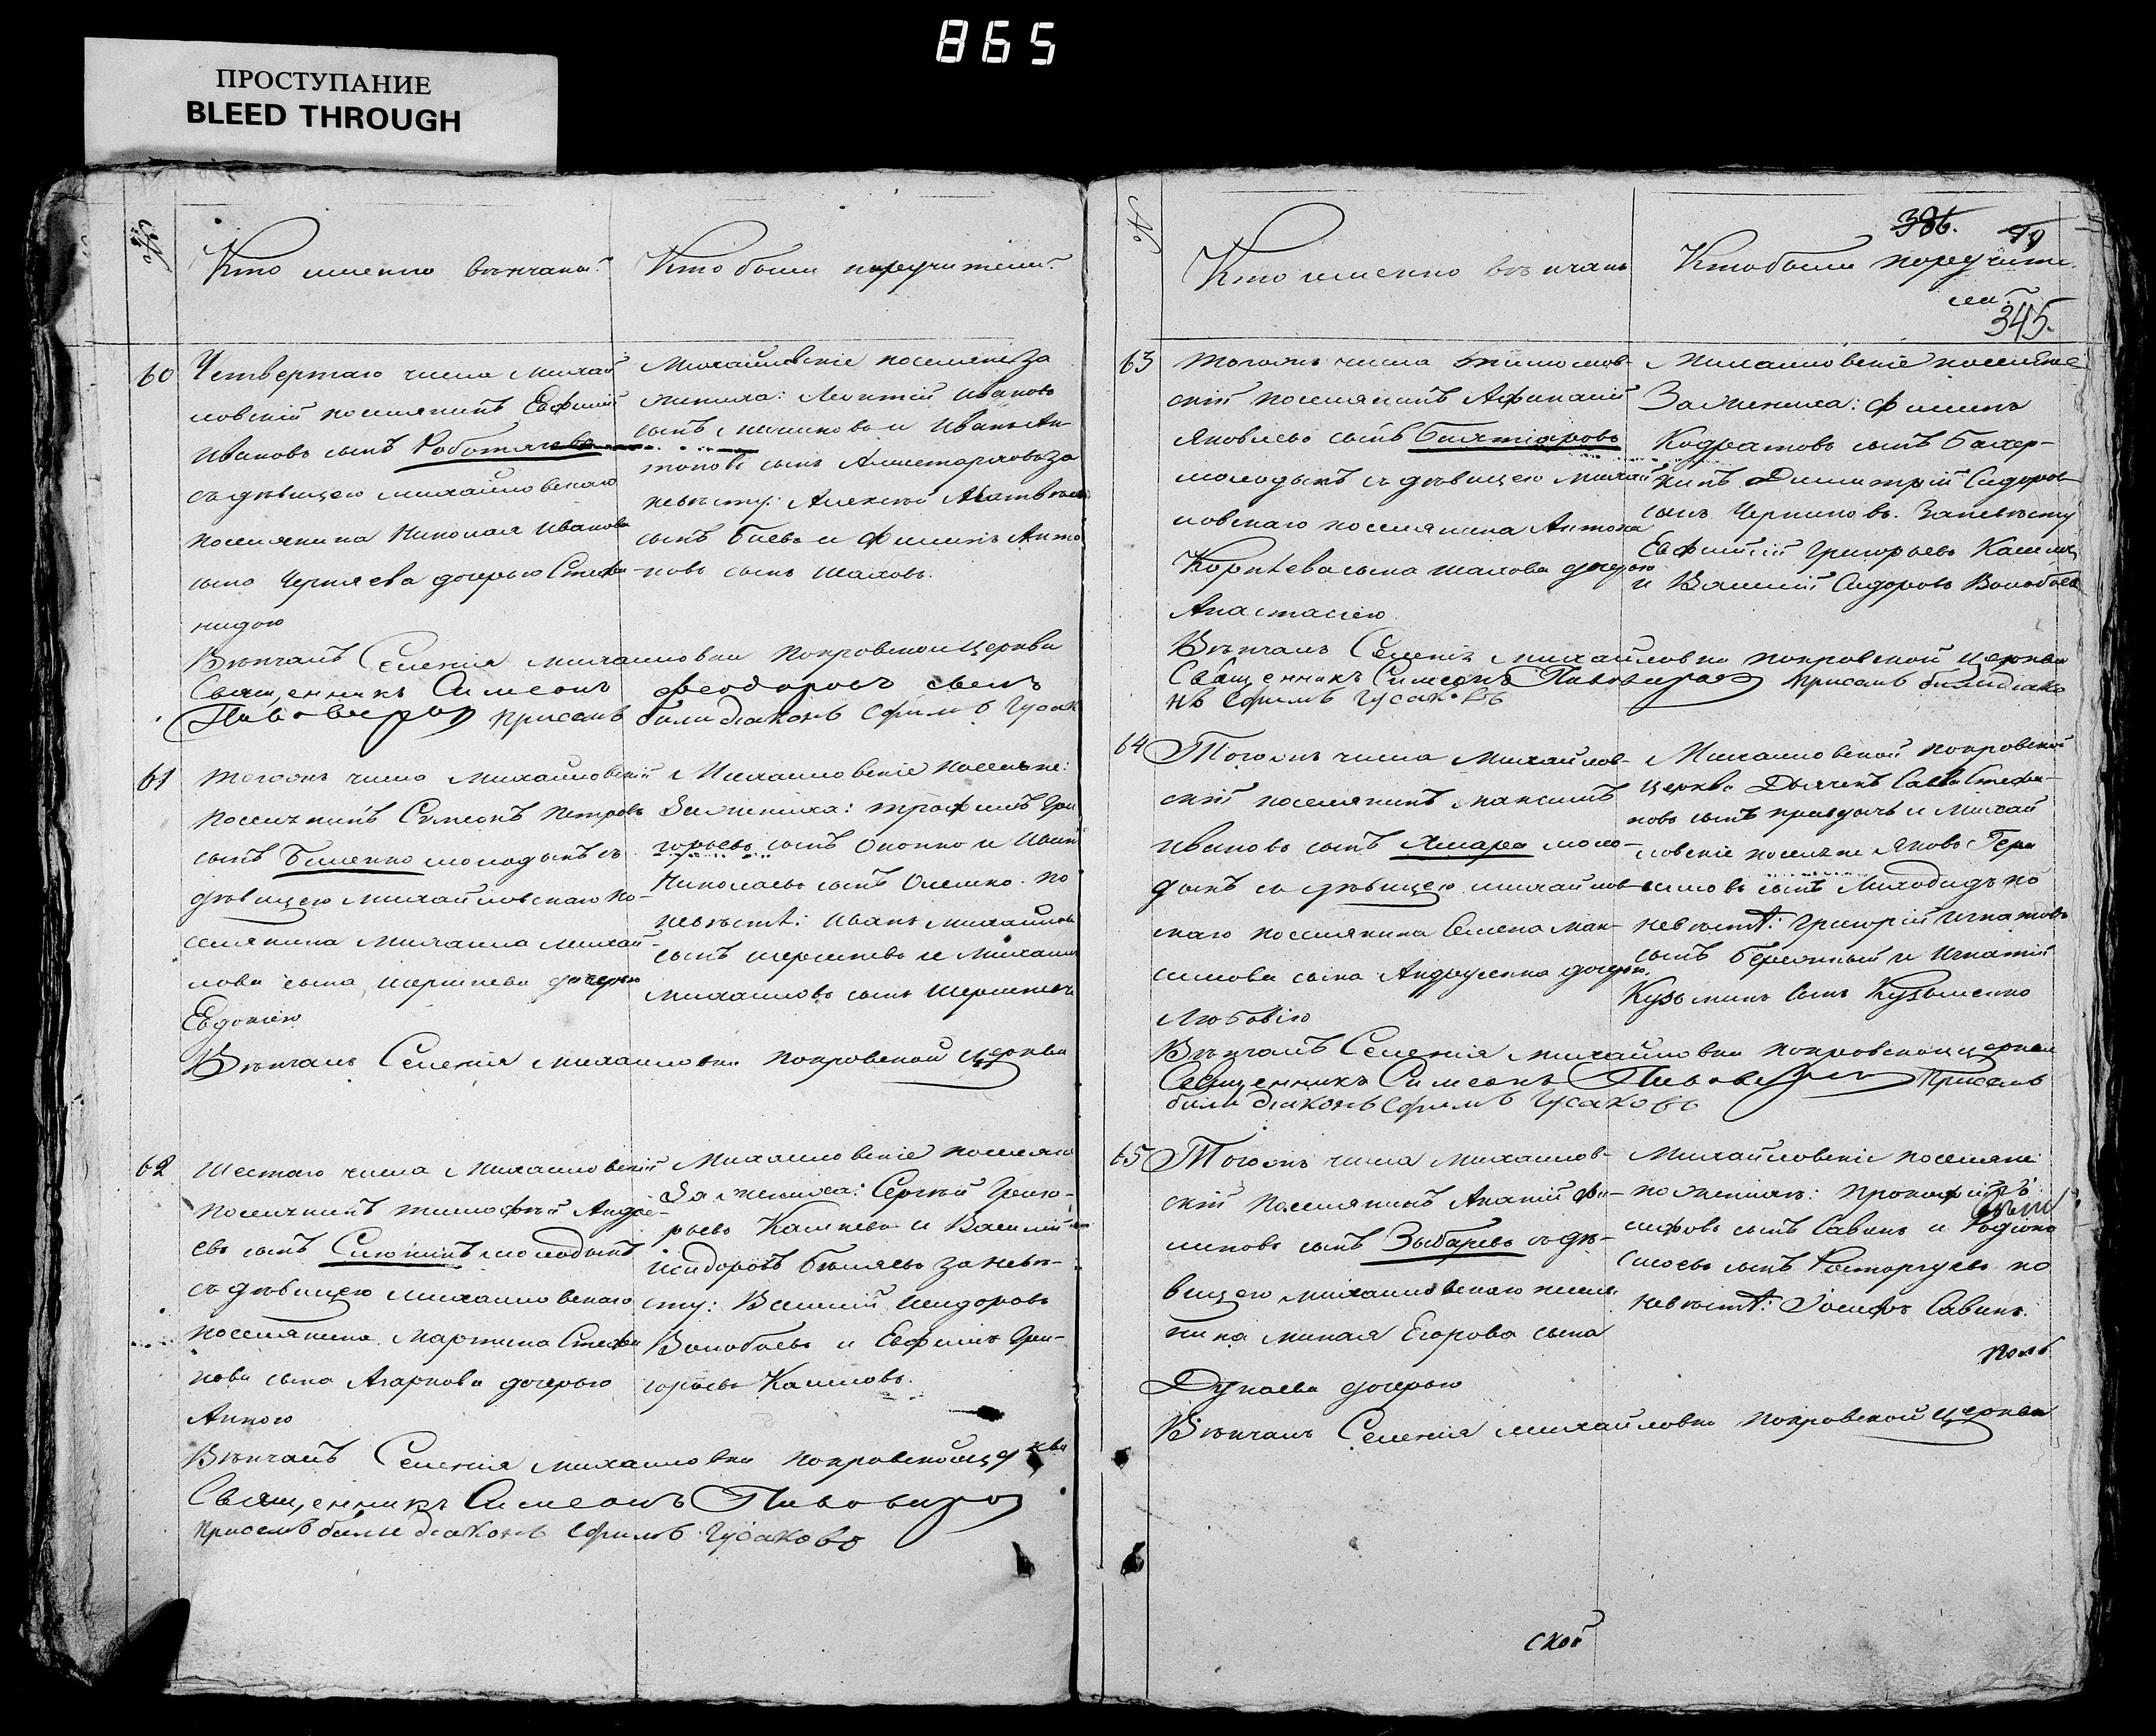 865
ПРОСТУПАНИЕ
BLEED THROUGH
№
Кто именно вѣнчаны.
Кто были поручители.
60
Четвертаго числа Михай
ловскій поселянинъ Евфимій
Ивановъ сынъ
съ дѣвицею Михайловскаго
поселянина Николая Иванова
сына Черняева дочерью Степа
нидою
Михайловскіе поселяне за
жениха: Леонтій Ивановъ
сынъ и Иванъ Ан
тоновъ сынъ за
невѣсту: Алексѣй Матвѣевъ
сынъ Боевъ и Филипъ Анто
новъ сынъ Шаховъ.
Вѣнчалъ Селенія Михаиловки Покровской церкви
Священникъ Симеонъ Феодоровъ сынъ
Пивоваровъ при семъ были діаконъ Ефимъ Гусак
61
Тогожъ числа Михайловскій
поселянинъ Сѵмеонъ Петровъ
сынъ Биленко молодыкъ съ
дѣвицею Михайловскаго по-
селянина Михаила Михай-
лова сына Шершнева дочерью
Евдокіею
Михаиловскіе поселяне:
За жениха: Трофимъ Гри
горьевъ сынъ Онопко и Иванъ
Николаевъ сынъ Олешко. По
невѣстѣ: Иванъ Михайловъ
сынъ Шершневъ и Михаилъ
Михаиловъ сынъ Шершневъ
Вѣнчалъ Селенія Михаиловки Покровской церкви
62
Шестаго числа Михаиловскій
поселянинъ Тимофѣй Андре-
евъ сынъ молодыкъ
съ дѣвицею Михаиловскаго
поселянина Мартина Стефа
нова сына Агаркова дочерью
Анною
Михаиловскіе поселяне
За жениха: Сергѣй Григо-
рьевъ и Василій
Исидоровъ Бѣляевъ за невѣ-
сту: Василій Исидоровъ
Воробьевъ и Евфимъ Гри-
горьевъ
Вѣнчалъ Селенія Михаиловки Покровской церкви
Священникъ Симеонъ Пивоваров
при семъ были діаконъ Ефимъ Гусаковъ
№
Кто именно вѣнчаны
Кто были поручите
ли.
386.
79
345.
63
Тогожъ числа
скій поселянинъ Афанасій
Яковлевъ сынъ
молодыкъ съ дѣвицею Михай
ловскаго поселянина Антона
Корнѣева сына Шахова дочерью
Анастасіею
Михаиловскіе поселяне
За жениха: Филипъ
Кодратовъ сынъ
Димитрій Сидоровъ
сынъ Черниковъ. За невѣсту
Евфимій Григорьевъ
и Василій Сидоровъ Воробьевъ
Вѣнчалъ Селенія Михайловки Покровской церкви
Священникъ Симеонъ Пивоваров при семъ были діако
нъ Ефимъ Гусаковъ
64
Тогожъ числа Михайлов-
скій поселянинъ Максимъ
Ивановъ сынъ моло-
дыкъ съ дѣвицею Михайлов-
скаго поселянина Семена Мак-
симова сына Андрусенка дочерью
Любовію
Михаиловской Покровской
церкви Дьячекъ Савва Стефа-
новъ сынъ и Михай
ловскіе поселяне Яковъ Гера
симовъ сынъ по
невѣстѣ: Григорій Игнатовъ
сынъ Бережный и Игнатій
Кузьминъ сынъ Кузьменко
Вѣнчалъ Селенія Михайловки Покровской церкви
Священникъ Симеонъ Пивоваров при семъ
были діаконъ Ефимъ Гусаковъ
65
Тогожъ числа Михаилов-
скій поселянинъ Ананій Фи-
липовъ сынъ Зыбаревъ съ дѣ-
вицею Михаиловскаго поселя
нина Миная Егорова сына
Дунаева дочерью
Михайловскіе поселяне
по женихѣ: Прокофій
сынъ Савинъ и Родіонъ
сынъ Расторгуевъ по
невѣстѣ: Іосифъ Савинъ.
Вѣнчалъ Селенія Михайловки Покровской церкви
ской